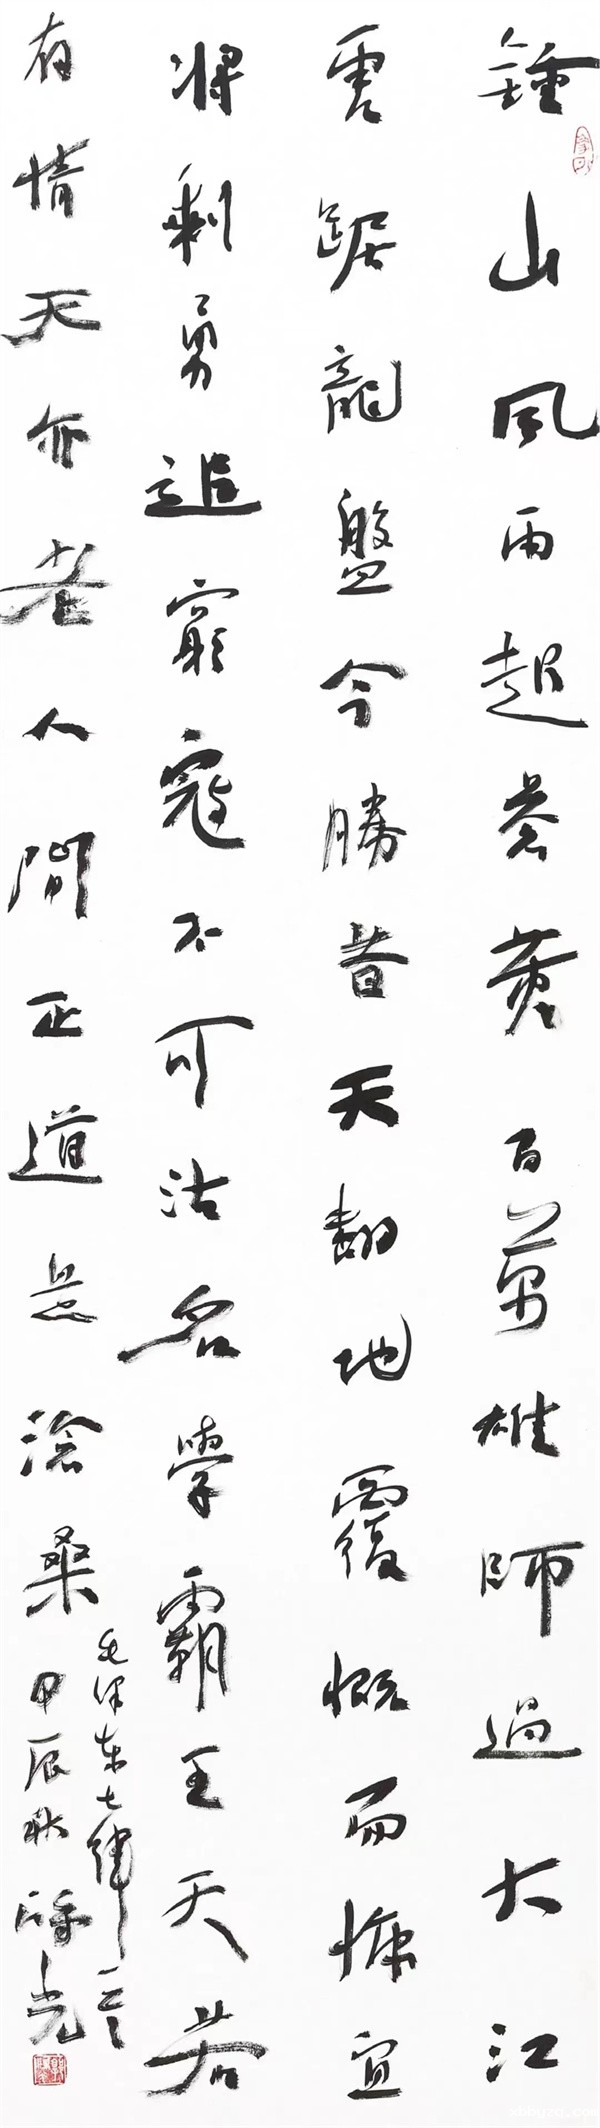 鍾山風雨起蒼黃百萬雄師過大江
虎踞龍盤今勝昔天翻地覆慨而慷宜
將剩勇追窮寇不可沽名學霸王天若
有情天亦老人間正道是滄桑
毛澤東七律
甲辰秋 光